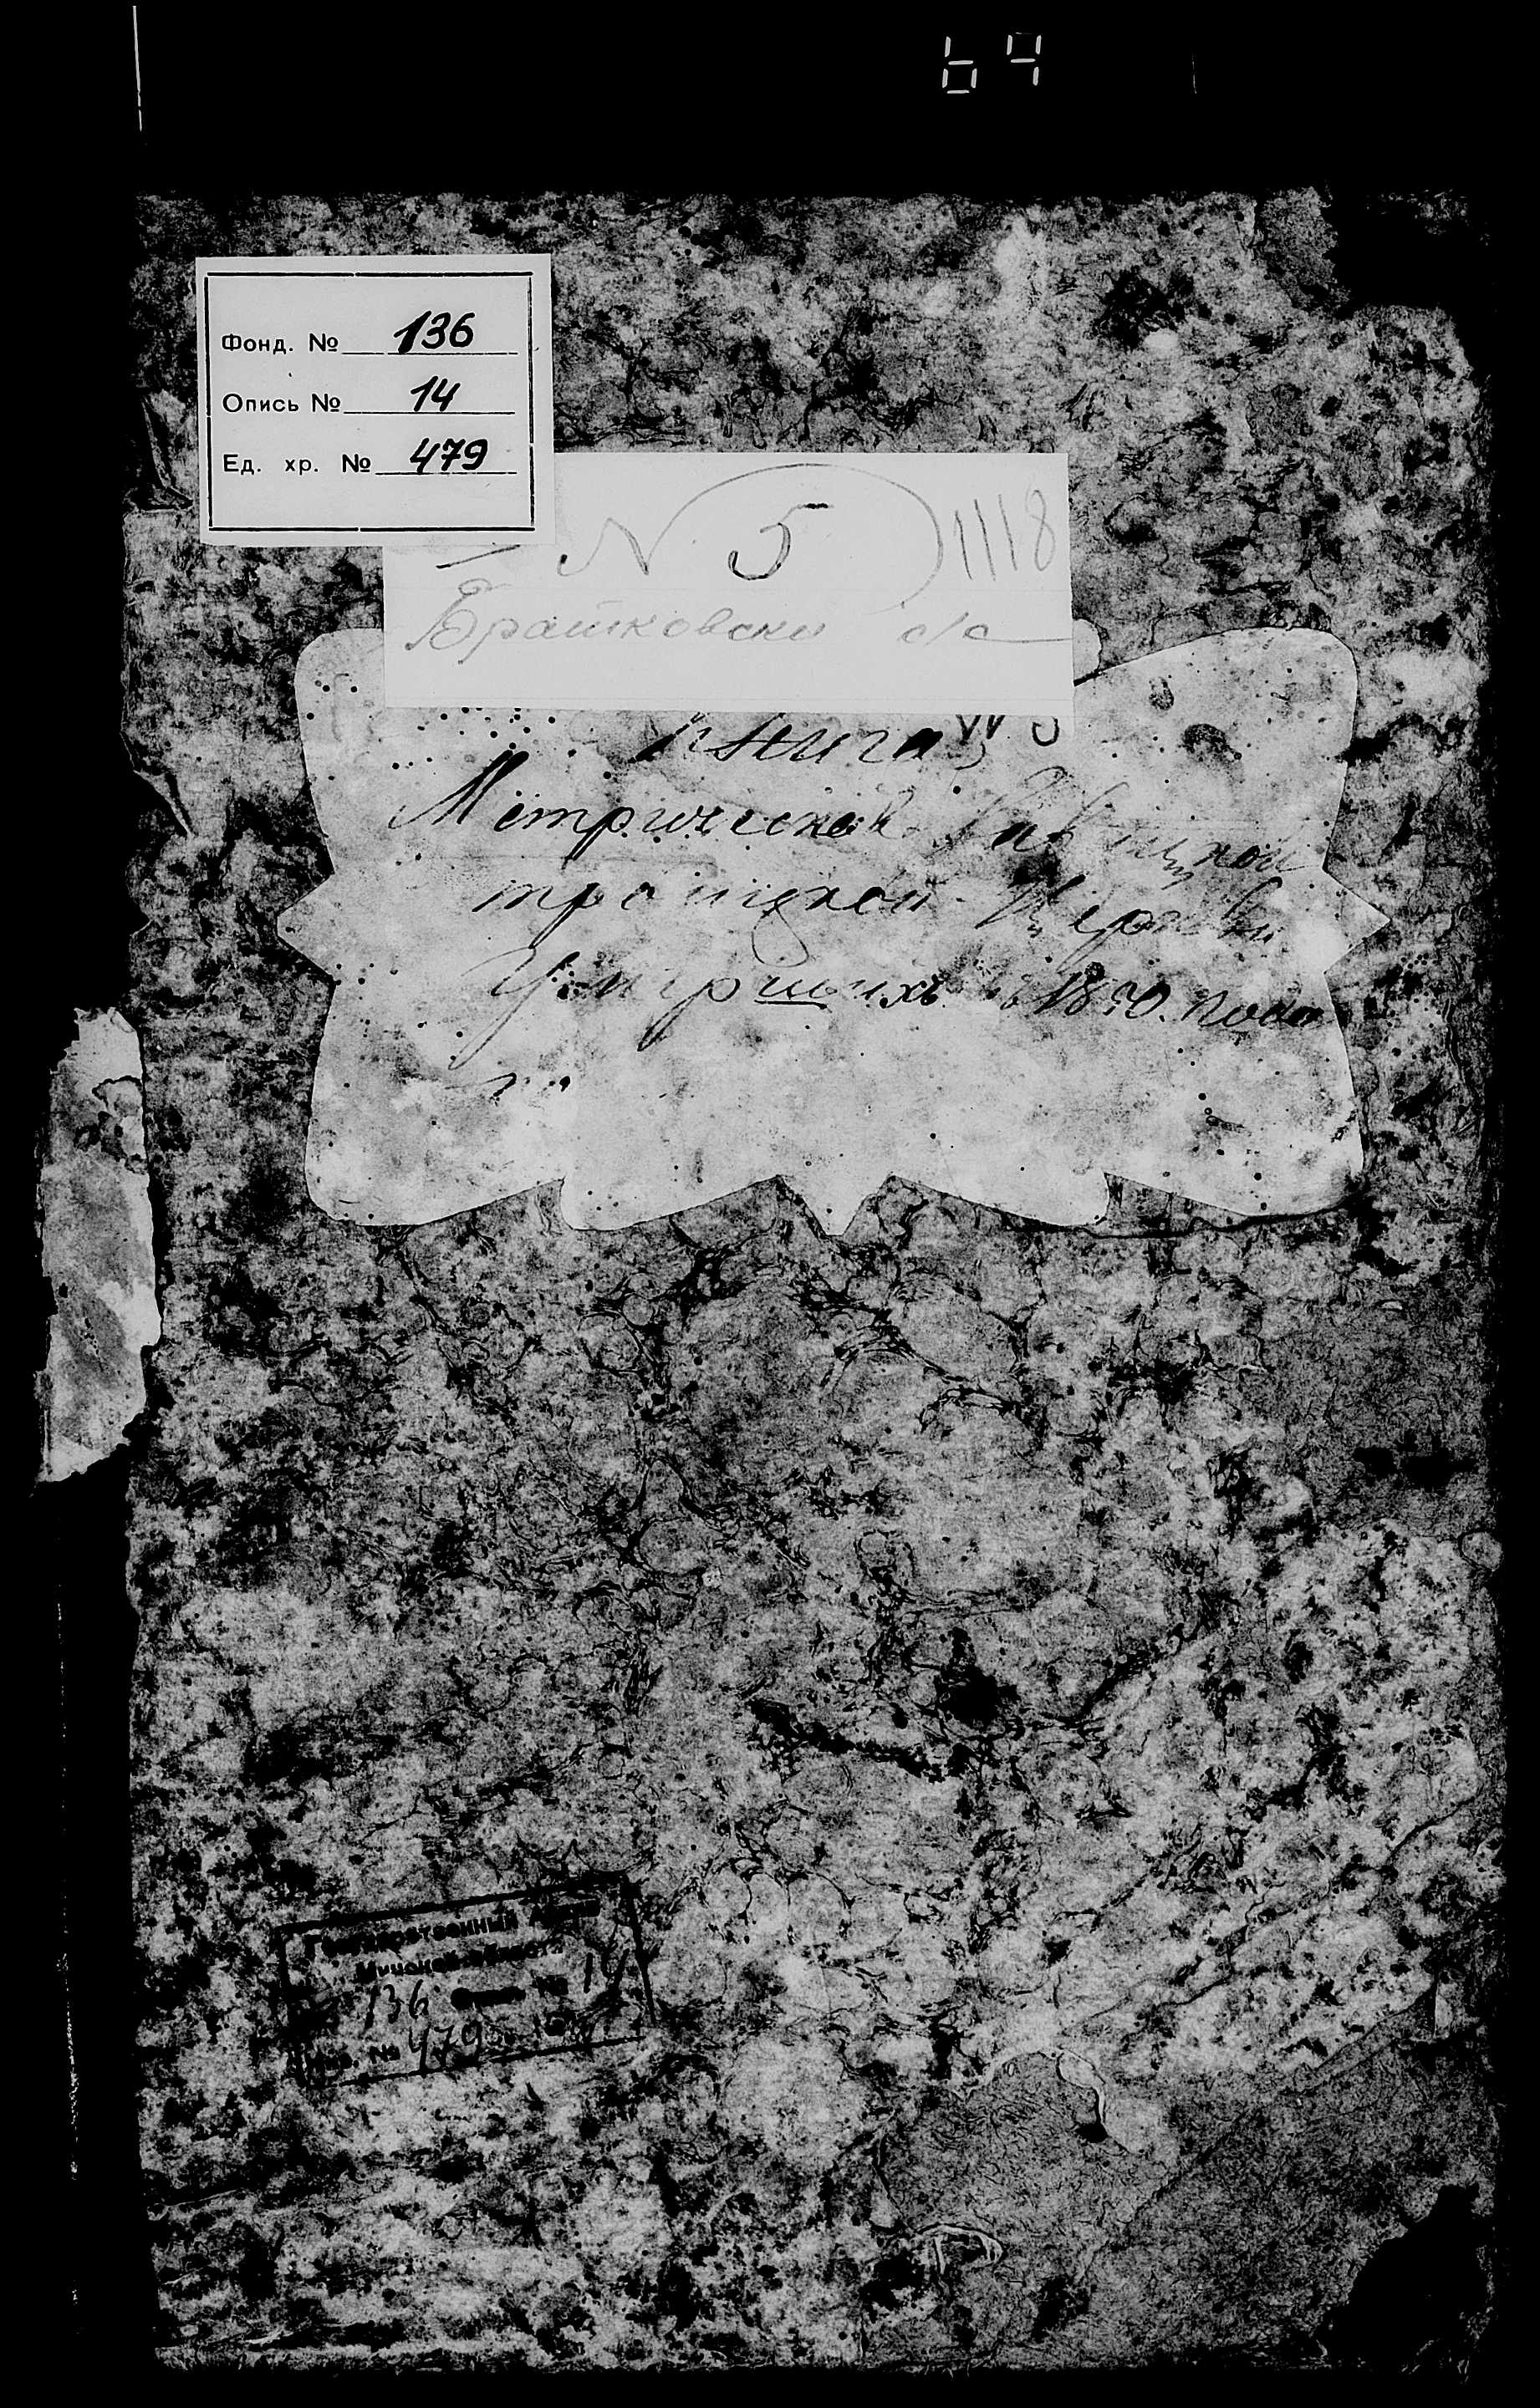 64
Фонд. № 136
Опись № 14
Ед. хр. № 479
N 5 1118
Братковски с/с
Книга
Метрической
троицкой Церкви
Умерших
Государственный
Минской области
136 14
№ 479